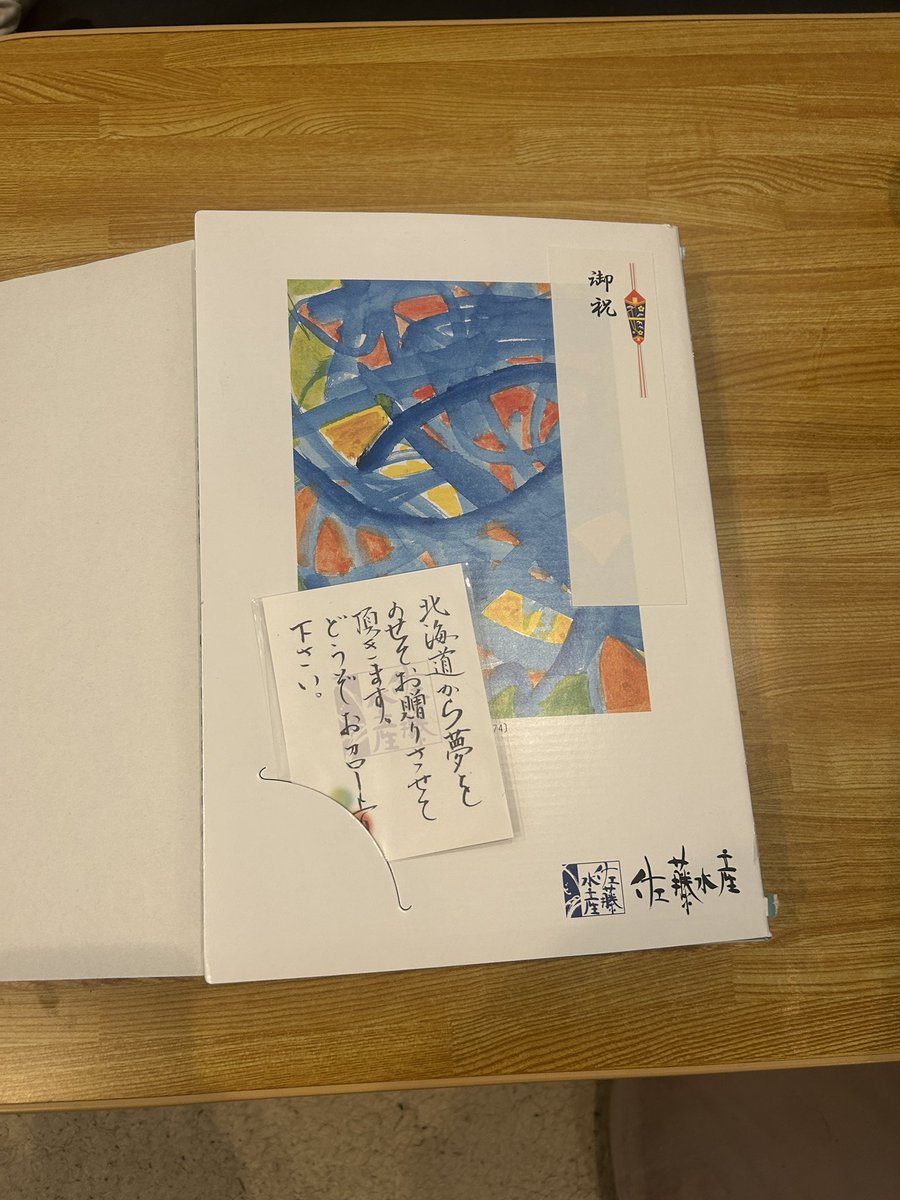 御祝
北海道から夢を
のせてお贈りさせて
頂きます、
どうぞお召し上り
下さい。
水産
74）
佐藤
水産
佐藤水産